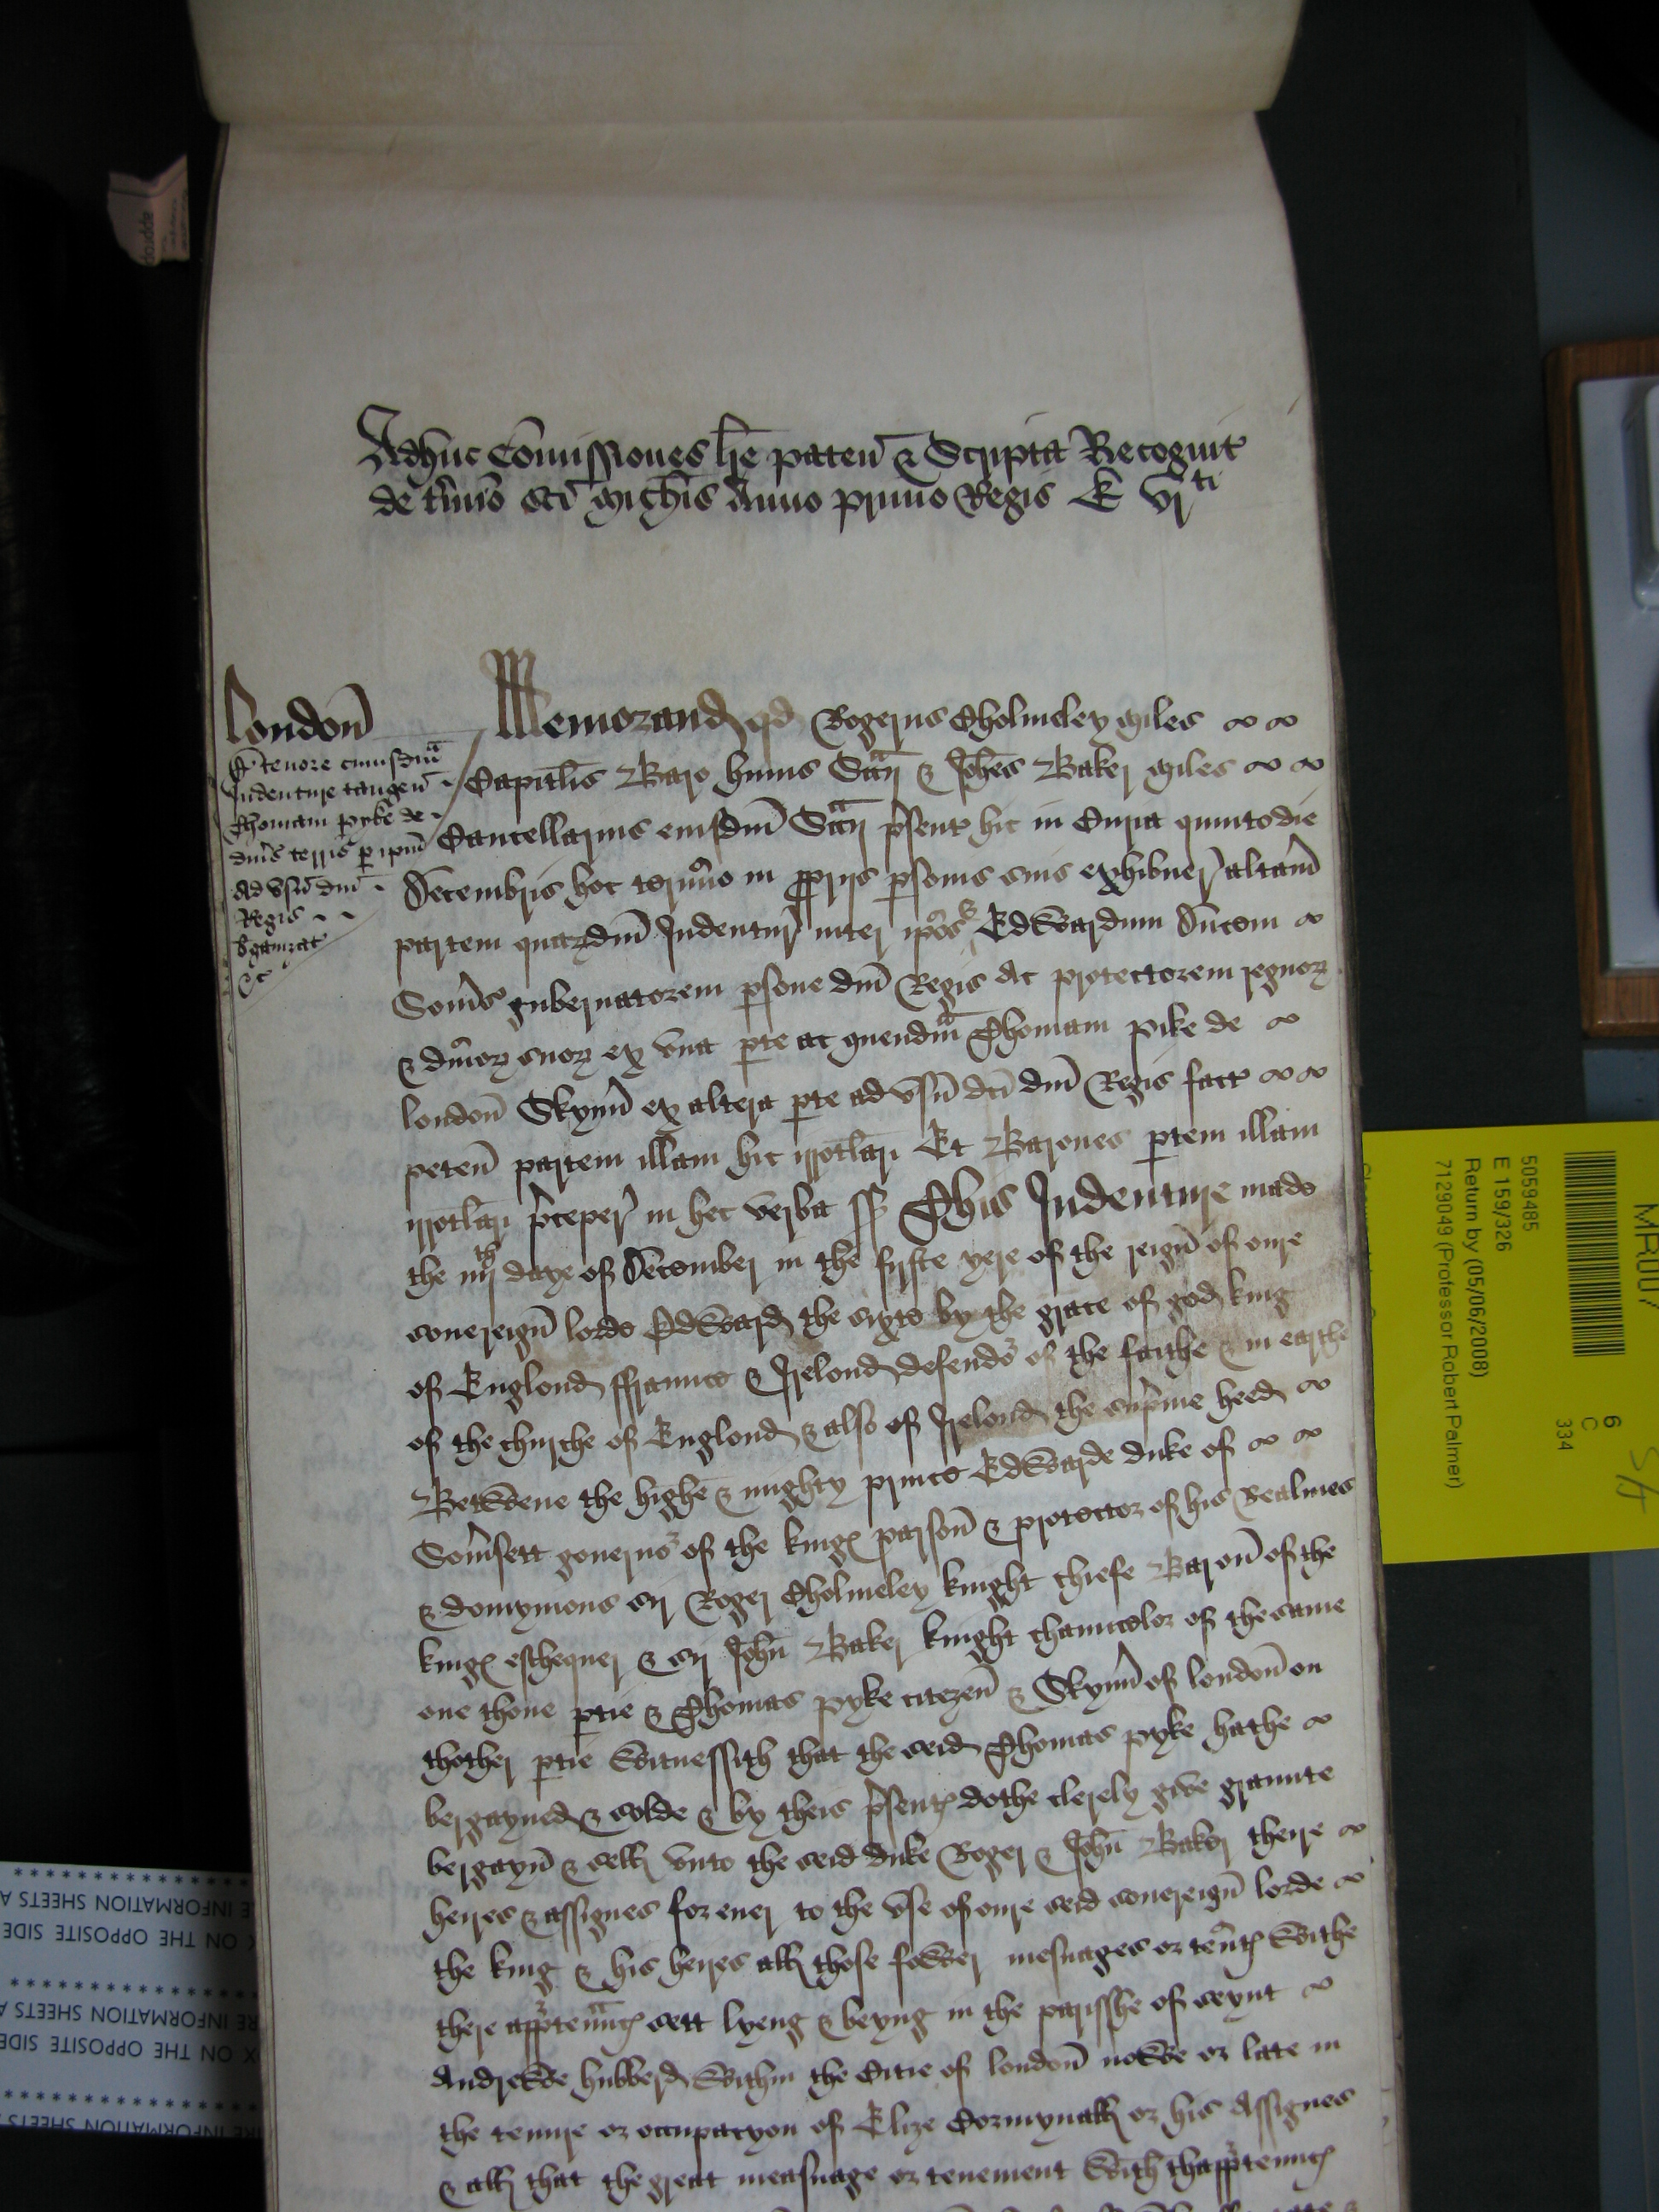 Adhuc Cōmissiones lr̄e paten̄ & Scripta Recognit
de t'mīo sc̄i Mich̄is Anno primo Regis E vjti
londōn
De tenore cuiusdm̄
Indenture tangen̄
Thomam pyke de
dūs terris p ip̄m
ad vsū dn̄i
Regis
bganizat
&c
Memorand qd Rogerus Cholmeley miles
Capital̄is Baro huius Scc̄ij & Joh̄es Baker miles
Cancellarius eiusdm̄ Scc̄ij p̄sent hic in Curia quinto die
Decembris hoc termīo in pprijs psonis suis exhibuer' alt'am
partem quarzdm̄ Indentur' inter ip̄os & Edwardum Ducem
Som's gubernatorem psone dn̄i Regis Ac protectorem regnorz
& dn̄iorz suorz ex vna pte ac quendm̄ Thomam pike de
londōn Skynn̄ ex altera pte ad vsū dc̄i dn̄i Regis fact
peten̄ partem illam hic irrotl̄ari Et Barones ptem illam
irrotl̄ari p̄ceper' in hec verba ss This Indenture made
the iiijth daye of December in the fyrste yere of the reign̄ of oure
souereign̄ lorde Edward the sixte by the grace of god king
of Englond ffraunce & Irelond defendor of the faithe & in earthe
of the churche of Englond & also of Irelond the sup̄me heed
Betwene the highe & mighty prince Edwarde duke of
Som'sett gouernor of the kinges parson̄ & protector of his Realmes
& domynions sir Roger Cholmeley knight chiefe Baron̄ of the
kinges eschequer & sir Joh̄n Baker knight chauncelor of thesame
one thone ptie & Thomas pyke citezen̄ & Skynn̄ of london̄ on
thother ptie Witnessith that the seid Thomas pyke hathe
bergayned & solde & by theis p̄sentes dothe clerely give graunte
bergayn̄ & sell vnto the seid duke Roger & Joh̄n Baker theire
heires & assignes for euer to the vse of oure seid souereign̄ lorde
the king & his heires all those fower mesuages or ten̄tes withe
there apptenn̄ces sett lyeng & beyng in the parisshe of seynt
Andrewe hubberd within the Citie of london̄ nowe or late in
the tenure or occupacyon of Elize Cormynall or his Assignes
& all that the great measuage or tenement with thapptenn̄ces
MR007
6
C
334
5059485
E 159/326
Return by (05/06/2008)
7129049 (Professor Robert Palmer)
INFORMATION SHEETS
ON THE OPPOSITE SIDE
INFORMATION SHEETS
ON THE OPPOSITE SIDE
INFORMATION SHEETS